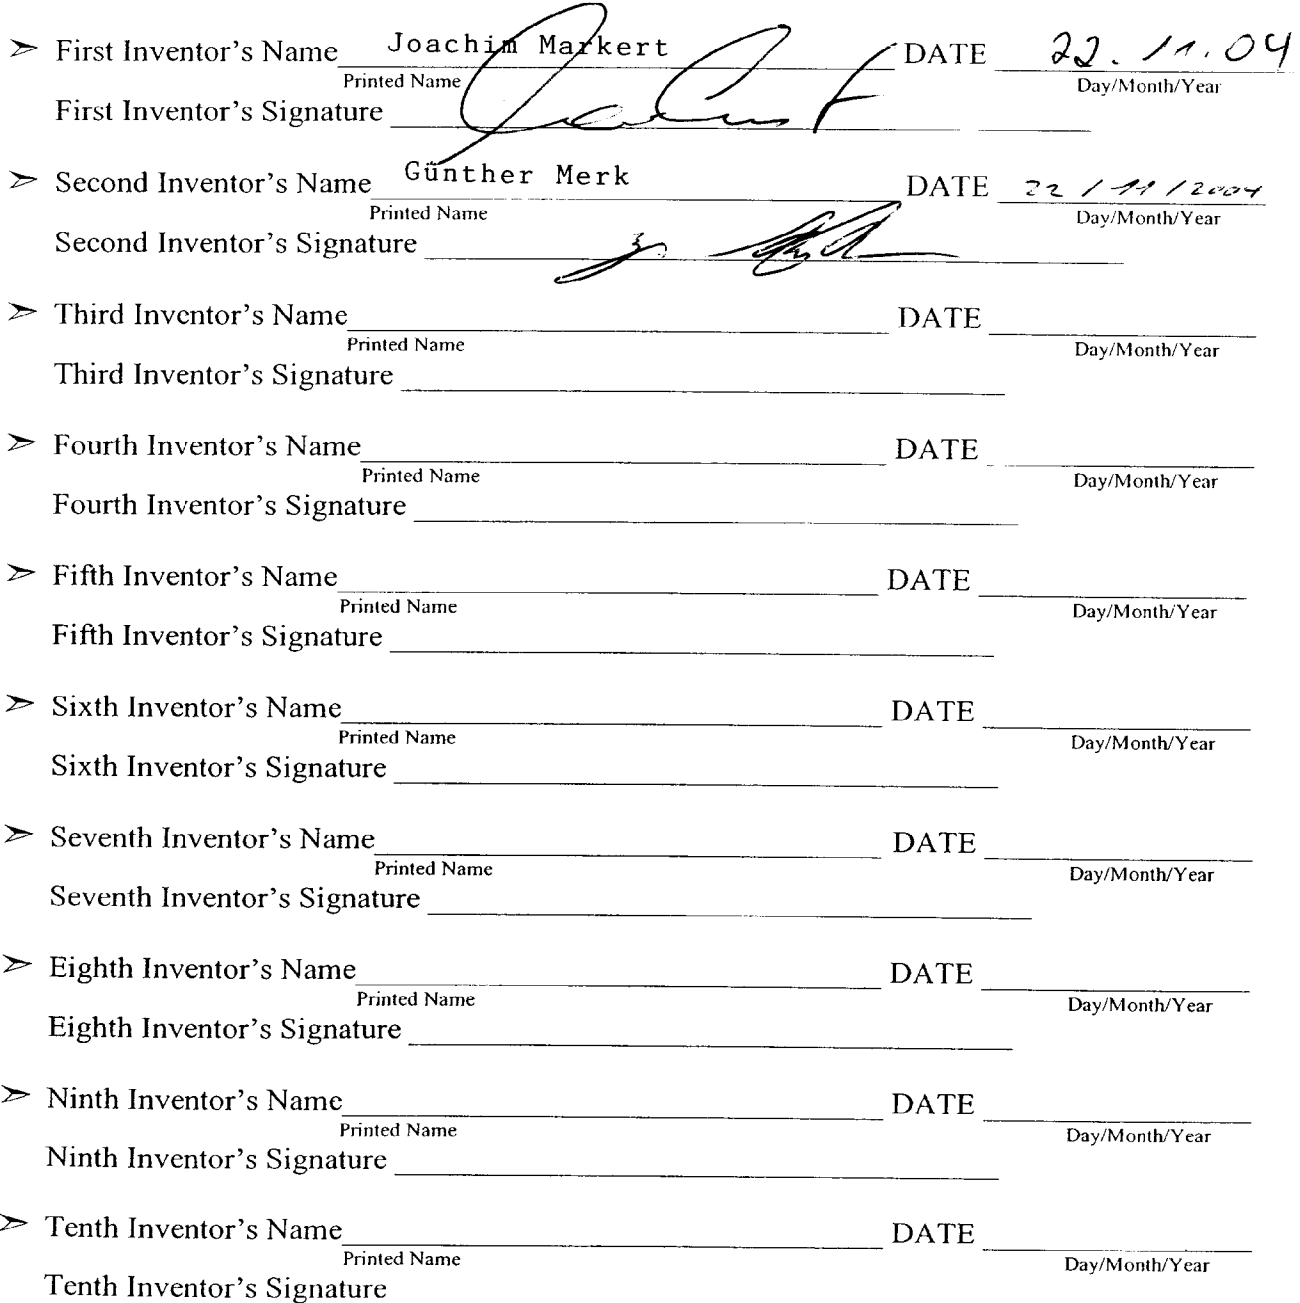 ➢ First Inventor's Name Joachim Markert DATE 22.11.04
Printed Name Day/Month/Year
First Inventor's Signature
➢ Second Inventor's Name Günther Merk DATE 22/11/2004
Printed Name Day/Month/Year
Second Inventor's Signature
➢ Third Inventor's Name DATE
Printed Name Day/Month/Year
Third Inventor's Signature
➢ Fourth Inventor's Name DATE
Printed Name Day/Month/Year
Fourth Inventor's Signature
➢ Fifth Inventor's Name DATE
Printed Name Day/Month/Year
Fifth Inventor's Signature
➢ Sixth Inventor's Name DATE
Printed Name Day/Month/Year
Sixth Inventor's Signature
➢ Seventh Inventor's Name DATE
Printed Name Day/Month/Year
Seventh Inventor's Signature
➢ Eighth Inventor's Name DATE
Printed Name Day/Month/Year
Eighth Inventor's Signature
➢ Ninth Inventor's Name DATE
Printed Name Day/Month/Year
Ninth Inventor's Signature
➢ Tenth Inventor's Name DATE
Printed Name Day/Month/Year
Tenth Inventor's Signature